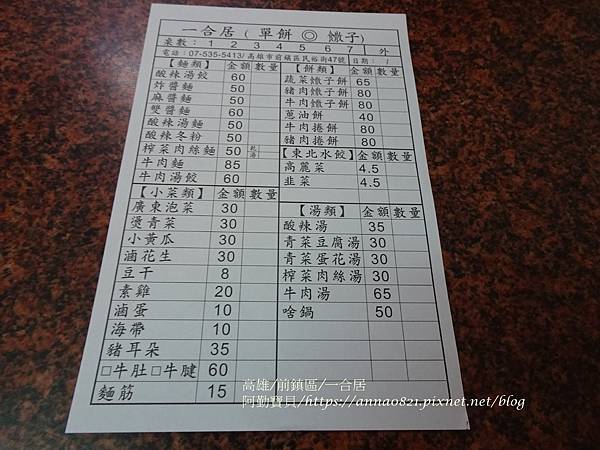 一合居 ( 單餅 ◎ 饊子)
桌數: 1 2 3 4 5 6 7 外
電話:07-535-5413/ 高雄市前鎮區民裕街47號 日期: /
【麵類】 金額 數量
酸辣湯餃 60
炸醬麵 50
麻醬麵 50
雙醬麵 60
酸辣湯麵 50
酸辣冬粉 50
榨菜肉絲麵 50 乾 湯
牛肉麵 85
牛肉湯餃 60
【小菜類】 金額 數量
廣東泡菜 30
燙青菜 30
小黃瓜 30
滷花生 30
豆干 8
素雞 20
滷蛋 10
海帶 10
豬耳朵 35
□牛肚□牛腱 60
麵筋 15
【餅類】 金額 數量
蔬菜饊子餅 65
豬肉饊子餅 80
牛肉饊子餅 80
蔥油餅 40
牛肉捲餅 80
豬肉捲餅 80
【東北水餃】 金額 數量
高麗菜 4.5
韭菜 4.5
【湯類】 金額 數量
酸辣湯 35
青菜豆腐湯 30
青菜蛋花湯 30
榨菜肉絲湯 30
牛肉湯 65
啥鍋 50
高雄/前鎮區/一合居
阿勤寶貝/https://anna0821.pixnet.net/blog